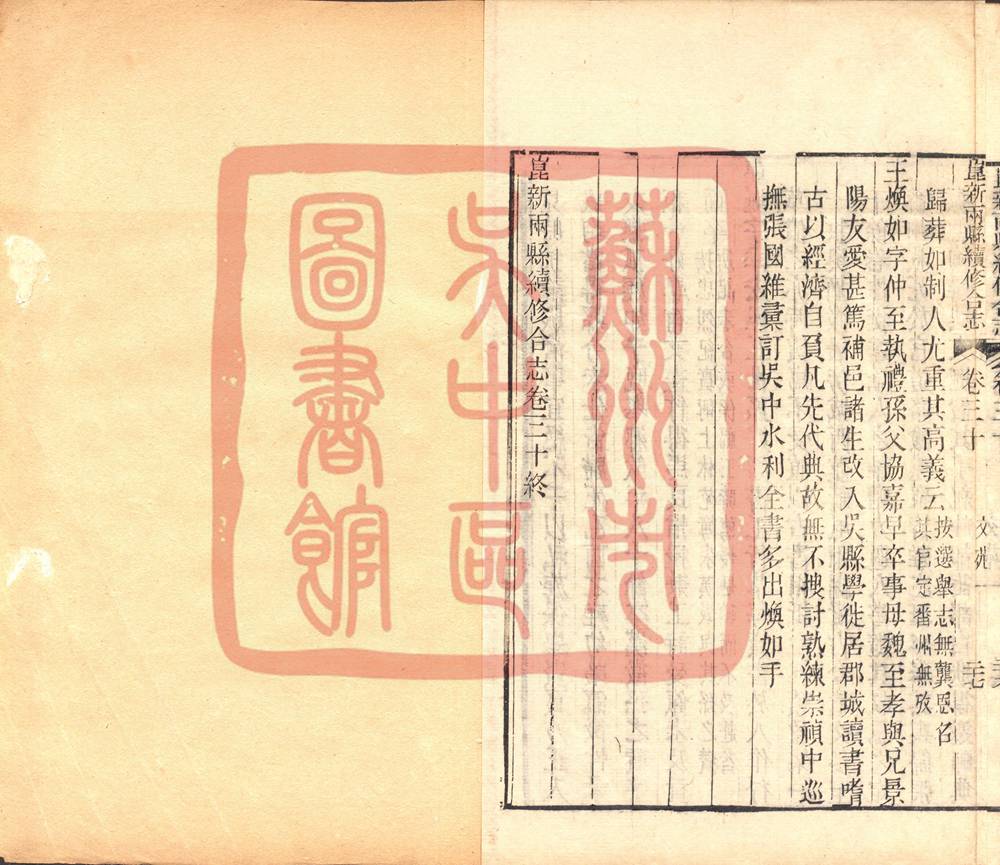 崑新兩縣續修合志
卷三十
二七
歸葬如制人尤重其高義云
按選舉志無龔恩名
其官定番州無攷
王煥如字仲至執禮孫父協嘉早卒事母魏至孝與兄景
陽友愛甚篤補邑諸生改入吳縣學徙居郡城讀書嗜
古以經濟自負凡先代典故無不搜討熟練崇禎中巡
撫張國維彙訂吳中水利全書多出煥如手
崑新兩縣續修合志卷三十終
蘇州市
吳中區
圖書館